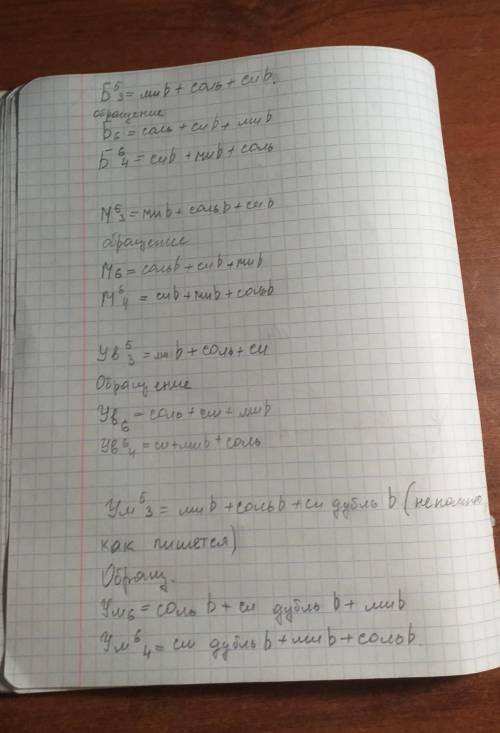 Б5/3 = миb + соль + сиb.
обращение
Б6 = соль + сиb + миb
Б6/4 = сиb + миb + соль
М5/3 = миb + сольb + сиb
обращение
М6 = сольb + сиb + миb
М6/4 = сиb + миb + сольb
Ув5/3 = миb + соль + си
Обращение
Ув6 = соль + си + миb
Ув6/4 = си + миb + соль
Ум5/3 = миb + сольb + си дубль b (не помню
как пишется)
Обращ.
Ум6 = сольb + си дубль b + миb
Ум6/4 = си дубль b + миb + сольb.